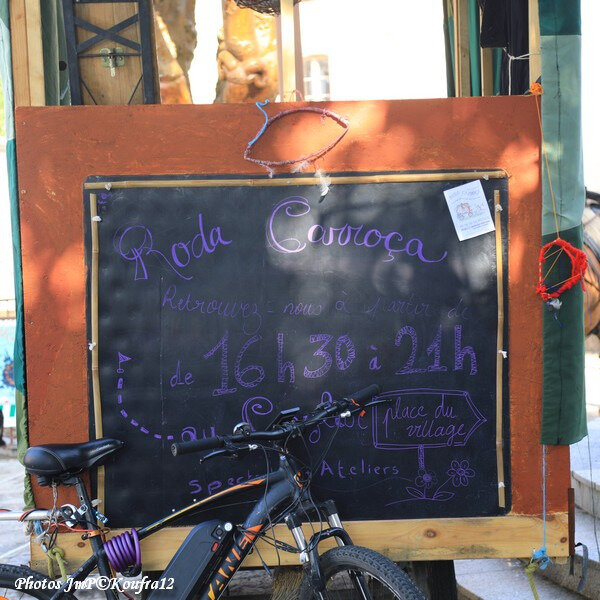 Roda Carroça
Retrouvez-nous à partir de
de 16h30 à 21h
au
place du
village
Ateliers
Photos JmP©Koufra12